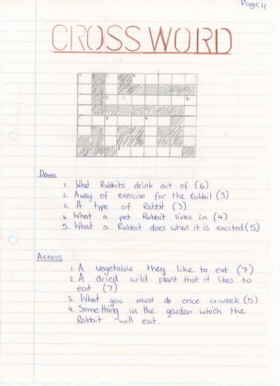 Page 4
CROSSWORD
Down
1. What Rabbits drink out of (6)
2. A way of exercise for the Rabbit (3)
3. A type of Rabbit (3)
4. What a pet Rabbit lives in (4)
5. What a Rabbit does when it is excited (5)
Across
1. A vegetable they like to eat (7)
2. A dried wild plant that it likes to
eat (7)
3. What you must do once a week (5)
4. Something in the garden which the
Rabbit will eat.